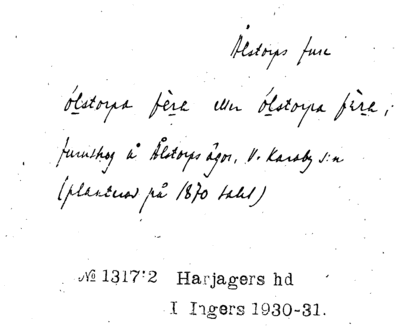 Ålstorps fure
ólstorpa fèra eller ólstorpa fèra,
furuskog å Ålstorps ägor, V. Karaby s:n
(planterad på 1870 talet)
№ 1317:2 Harjagers hd
I Ingers 1930-31.